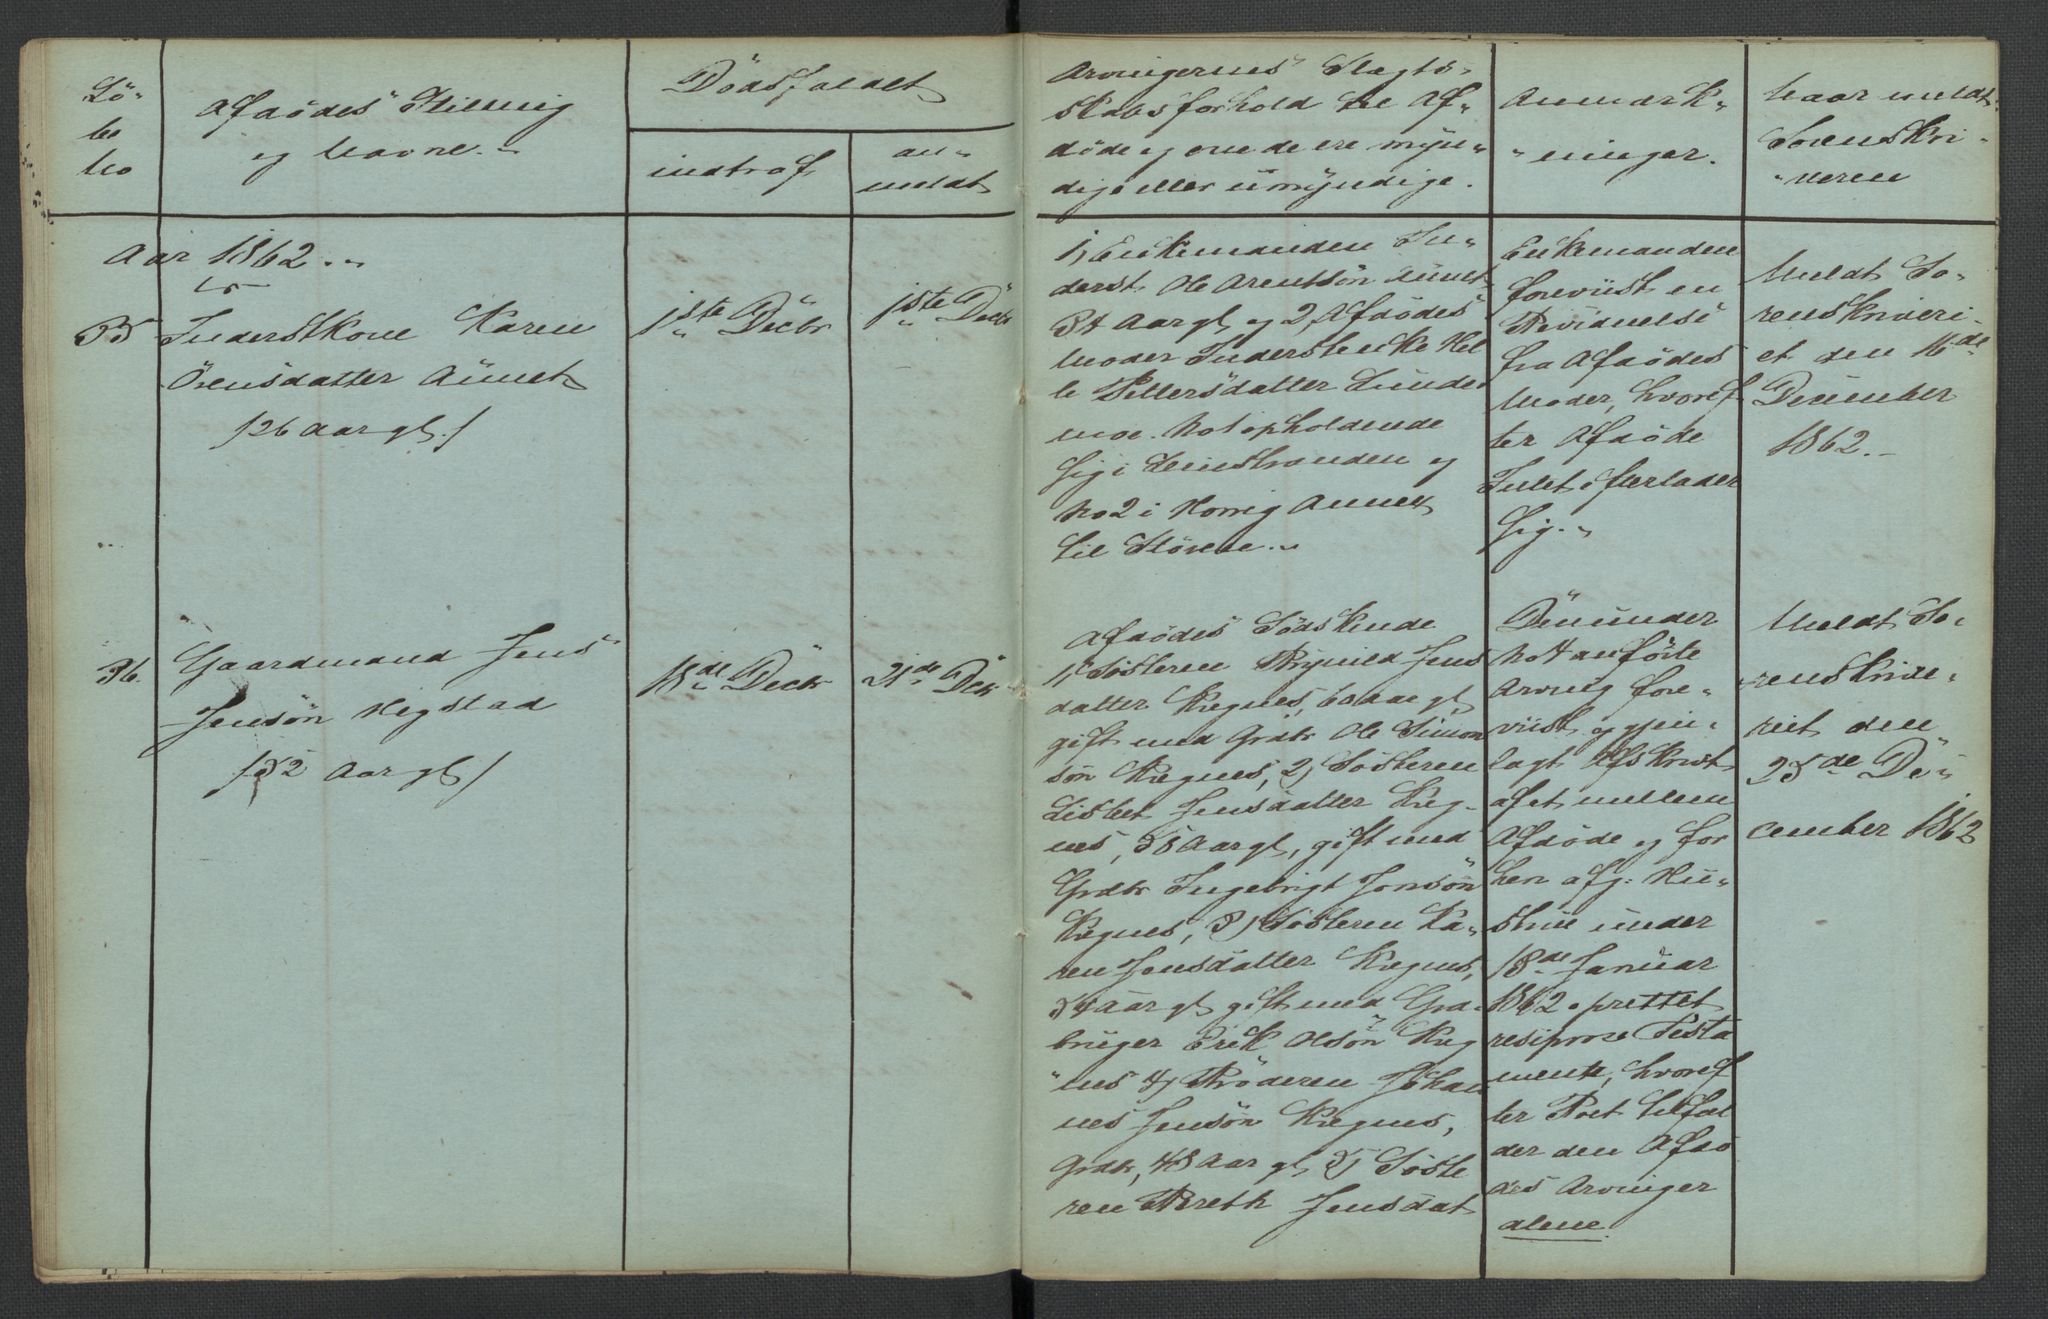 Lö-
be
No
Afdödes Stilling
og Navne.
Dödsfaldet
indtraf
an-
meldt
Arvingernes Slægts-
skabsforhold til Af-
döde og om de ere myn-
dige eller umyndige.
Anmærk-
ninger.
Naar meldt
Sorenskri-
veren
Aar 1862.
35
Inderstkone Karen
Örensdatter Aunet
/26 Aar gl./
1ste Decbr
1ste Decbr
1, Enkemanden In-
derst Ole Arentsön Aunet
34 Aar gl. og 2, Afdödes
Moder Inderstenke Mel
le Pettersdatter Lunde
moe. No 1 opholdende
sig i Leinstranden og
No 2 i Horrig Annex
til Stören.
Enkemanden
foreviist en
Bevidnelse
fra Afdödes
Moder, hvoref
ter Afdöde
Intet efterlader
sig.
Meldt So-
renskriveri-
et den 16de
December
1862.
36.
Gaardmand Jens
Jensön Hegstad
/52 Aar gl./
18de Decbr
21de Dcbr
Afdödes Södskende
1, Sösteren Brynild Jens
datter Kregnes, 60 Aar gl,
gift med Grdbr Ole Simon
sön Kregnes, 2, Sösteren
Lisbet Jensdatter Kreg-
nes, 58 Aar gl, gift med
Grdbr Ingebrigt Jonsön
Kregnes, 3, Sösteren Ka-
ren Jensdatter Kregnes,
54 Aar gl gift med Grd-
bruger Erik Olsön Kreg
nes 4, Broderen Johan
nes Jensön Kregnes,
Grdbr, 48 Aar gl, 5, Söste
ren Bereth Jensdat
Den under
No 4 anförte
Arving fore-
viist og gjen-
lagt Afskrivt
af et mellem
Afdöde og for
hen afg: Hu-
strue under
18de Januar
1862 oprettet
resiproxe Testa
mente, hvoref
ter Boet tilfal
der den Afdö
des Arvinger
alene.
Meldt So-
renskrive-
riet den
25de De-
cember 1862